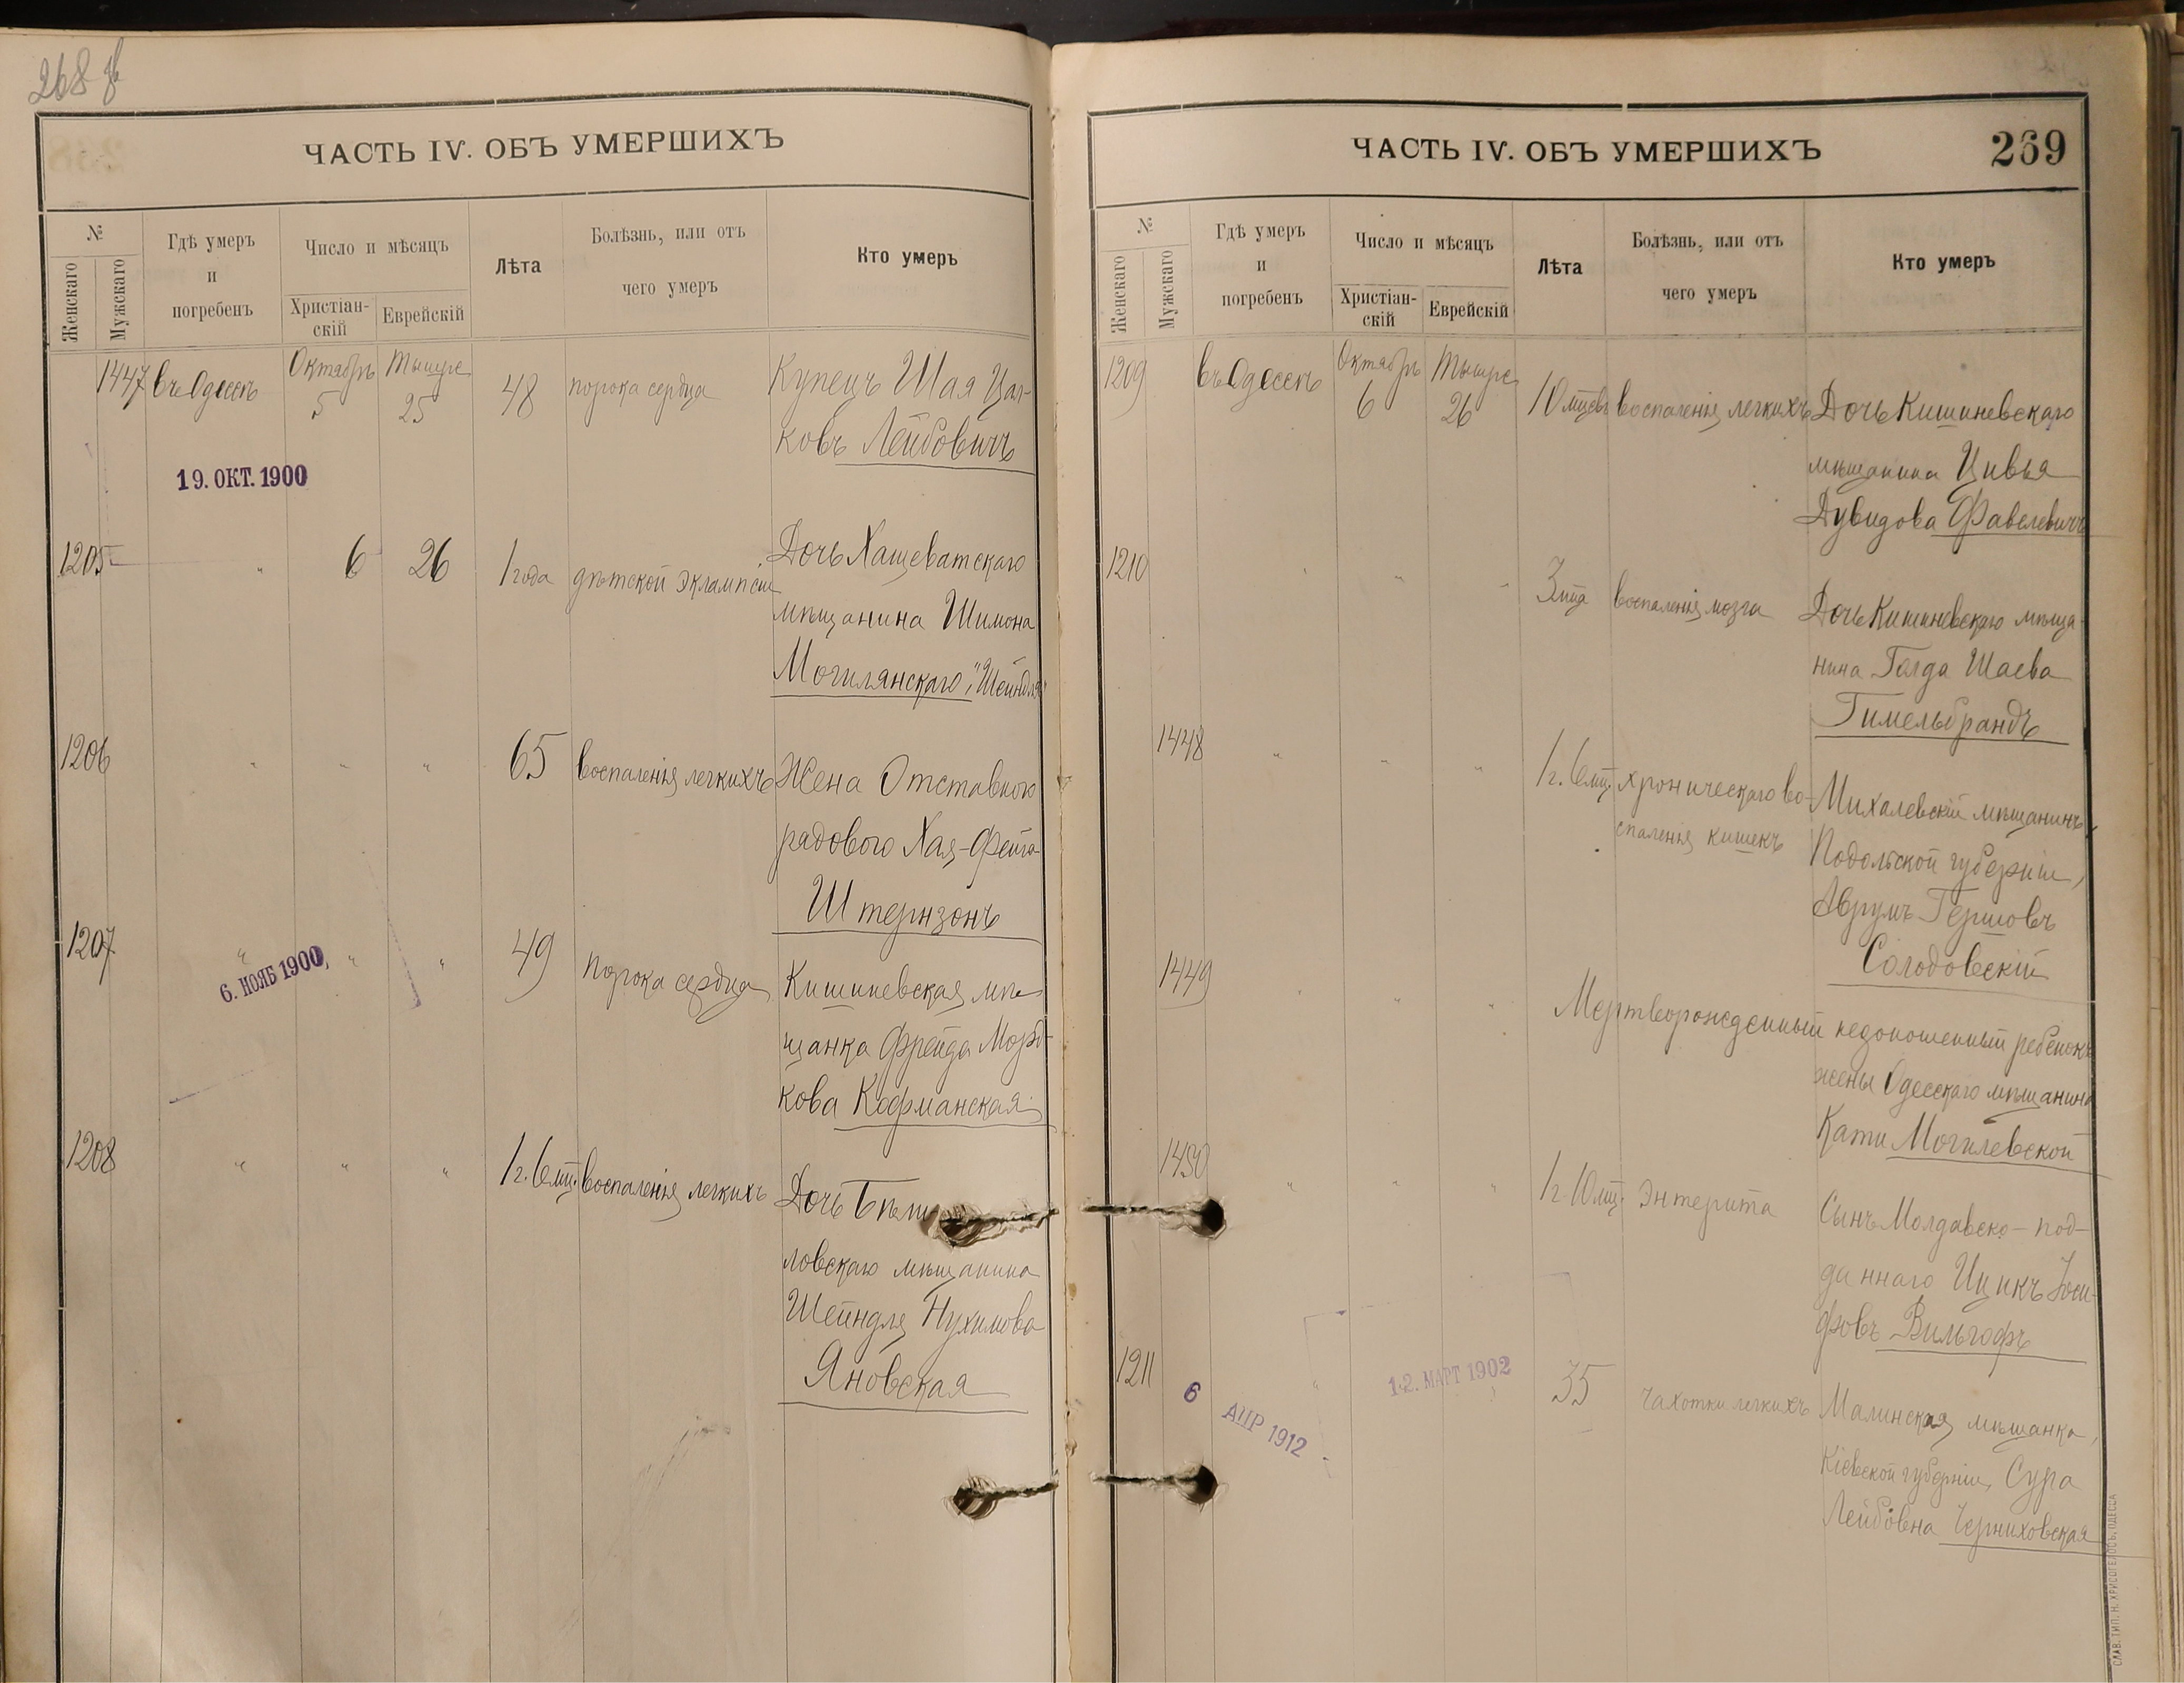 268 об
ЧАСТЬ IV. ОБЪ УМЕРШИХЪ
№
Женскаго
Мужскаго
Гдѣ умеръ
и
погребенъ
Число и мѣсяцъ
Христіан-
скій
Еврейскій
Лѣта
Болѣзнь, или отъ
чего умеръ
Кто умеръ
1447 въ Одессѣ Октябрь 5 Тышре 25 48 порока сердца Купецъ Шая Цал-
ковъ Лейбовичъ
19. ОКТ. 1900
1205 " 6 26 1 года дѣтской эклампсіи Дочь Хащеватскаго
мѣщанина Шимона
Могилянскаго, "Шейндля"
1206 " " " 65 воспаленія легкихъ Жена Отставного
рядового Хая-Фейга
Штернзонъ
1207 " " " 49 порока сердца Кишиневская мѣ-
щанка Фрейда Морд-
кова Кофманская
6. НОЯБ 1900
1208 " " " 1 г. 6 мц. воспаленія легкихъ Дочь
ловскаго мѣщанина
Шейндля Нухимова
Яновская
ЧАСТЬ IV. ОБЪ УМЕРШИХЪ
269
№
Женскаго
Мужскаго
Гдѣ умеръ
и
погребенъ
Число и мѣсяцъ
Христіан-
скій
Еврейскій
Лѣта
Болѣзнь, или отъ
чего умеръ
Кто умеръ
1209 въ Одессѣ Октябрь 6 Тышре 26 10 мцевъ воспаленія легкихъ Дочь Кишиневскаго
мѣщанина Цивья
Дувидова Фавелевичъ
1210 " " " 3 мца воспаленія мозга Дочь Кишиневскаго мѣща-
нина Голда Шаева
Гимельбрандъ
1448 " " " " 1 г. 6 мц. хроническаго во-
спаленія кишекъ
Михалевскій мѣщанинъ,
Подольской губерніи,
Аврумъ Гершовъ
Солодовскій
1449 " " " Мертворожденный недоношенный ребенокъ
жены Одесскаго мѣщанина
Кати Могилевской
1450 " " " 1 г. 10 мц. энтерита Сынъ Молдавско-под-
даннаго Ицикъ Іоси-
фовъ Вильгофъ
1211 " 35 чахотки легкихъ Малинская мѣщанка,
Кіевской губерніи, Сура
Лейбовна Черниховская
12. МАРТ 1902
6 АПР 1912
СЛАВ. ТИП. Н. ХРИСОГЕЛОСЪ, ОДЕССА